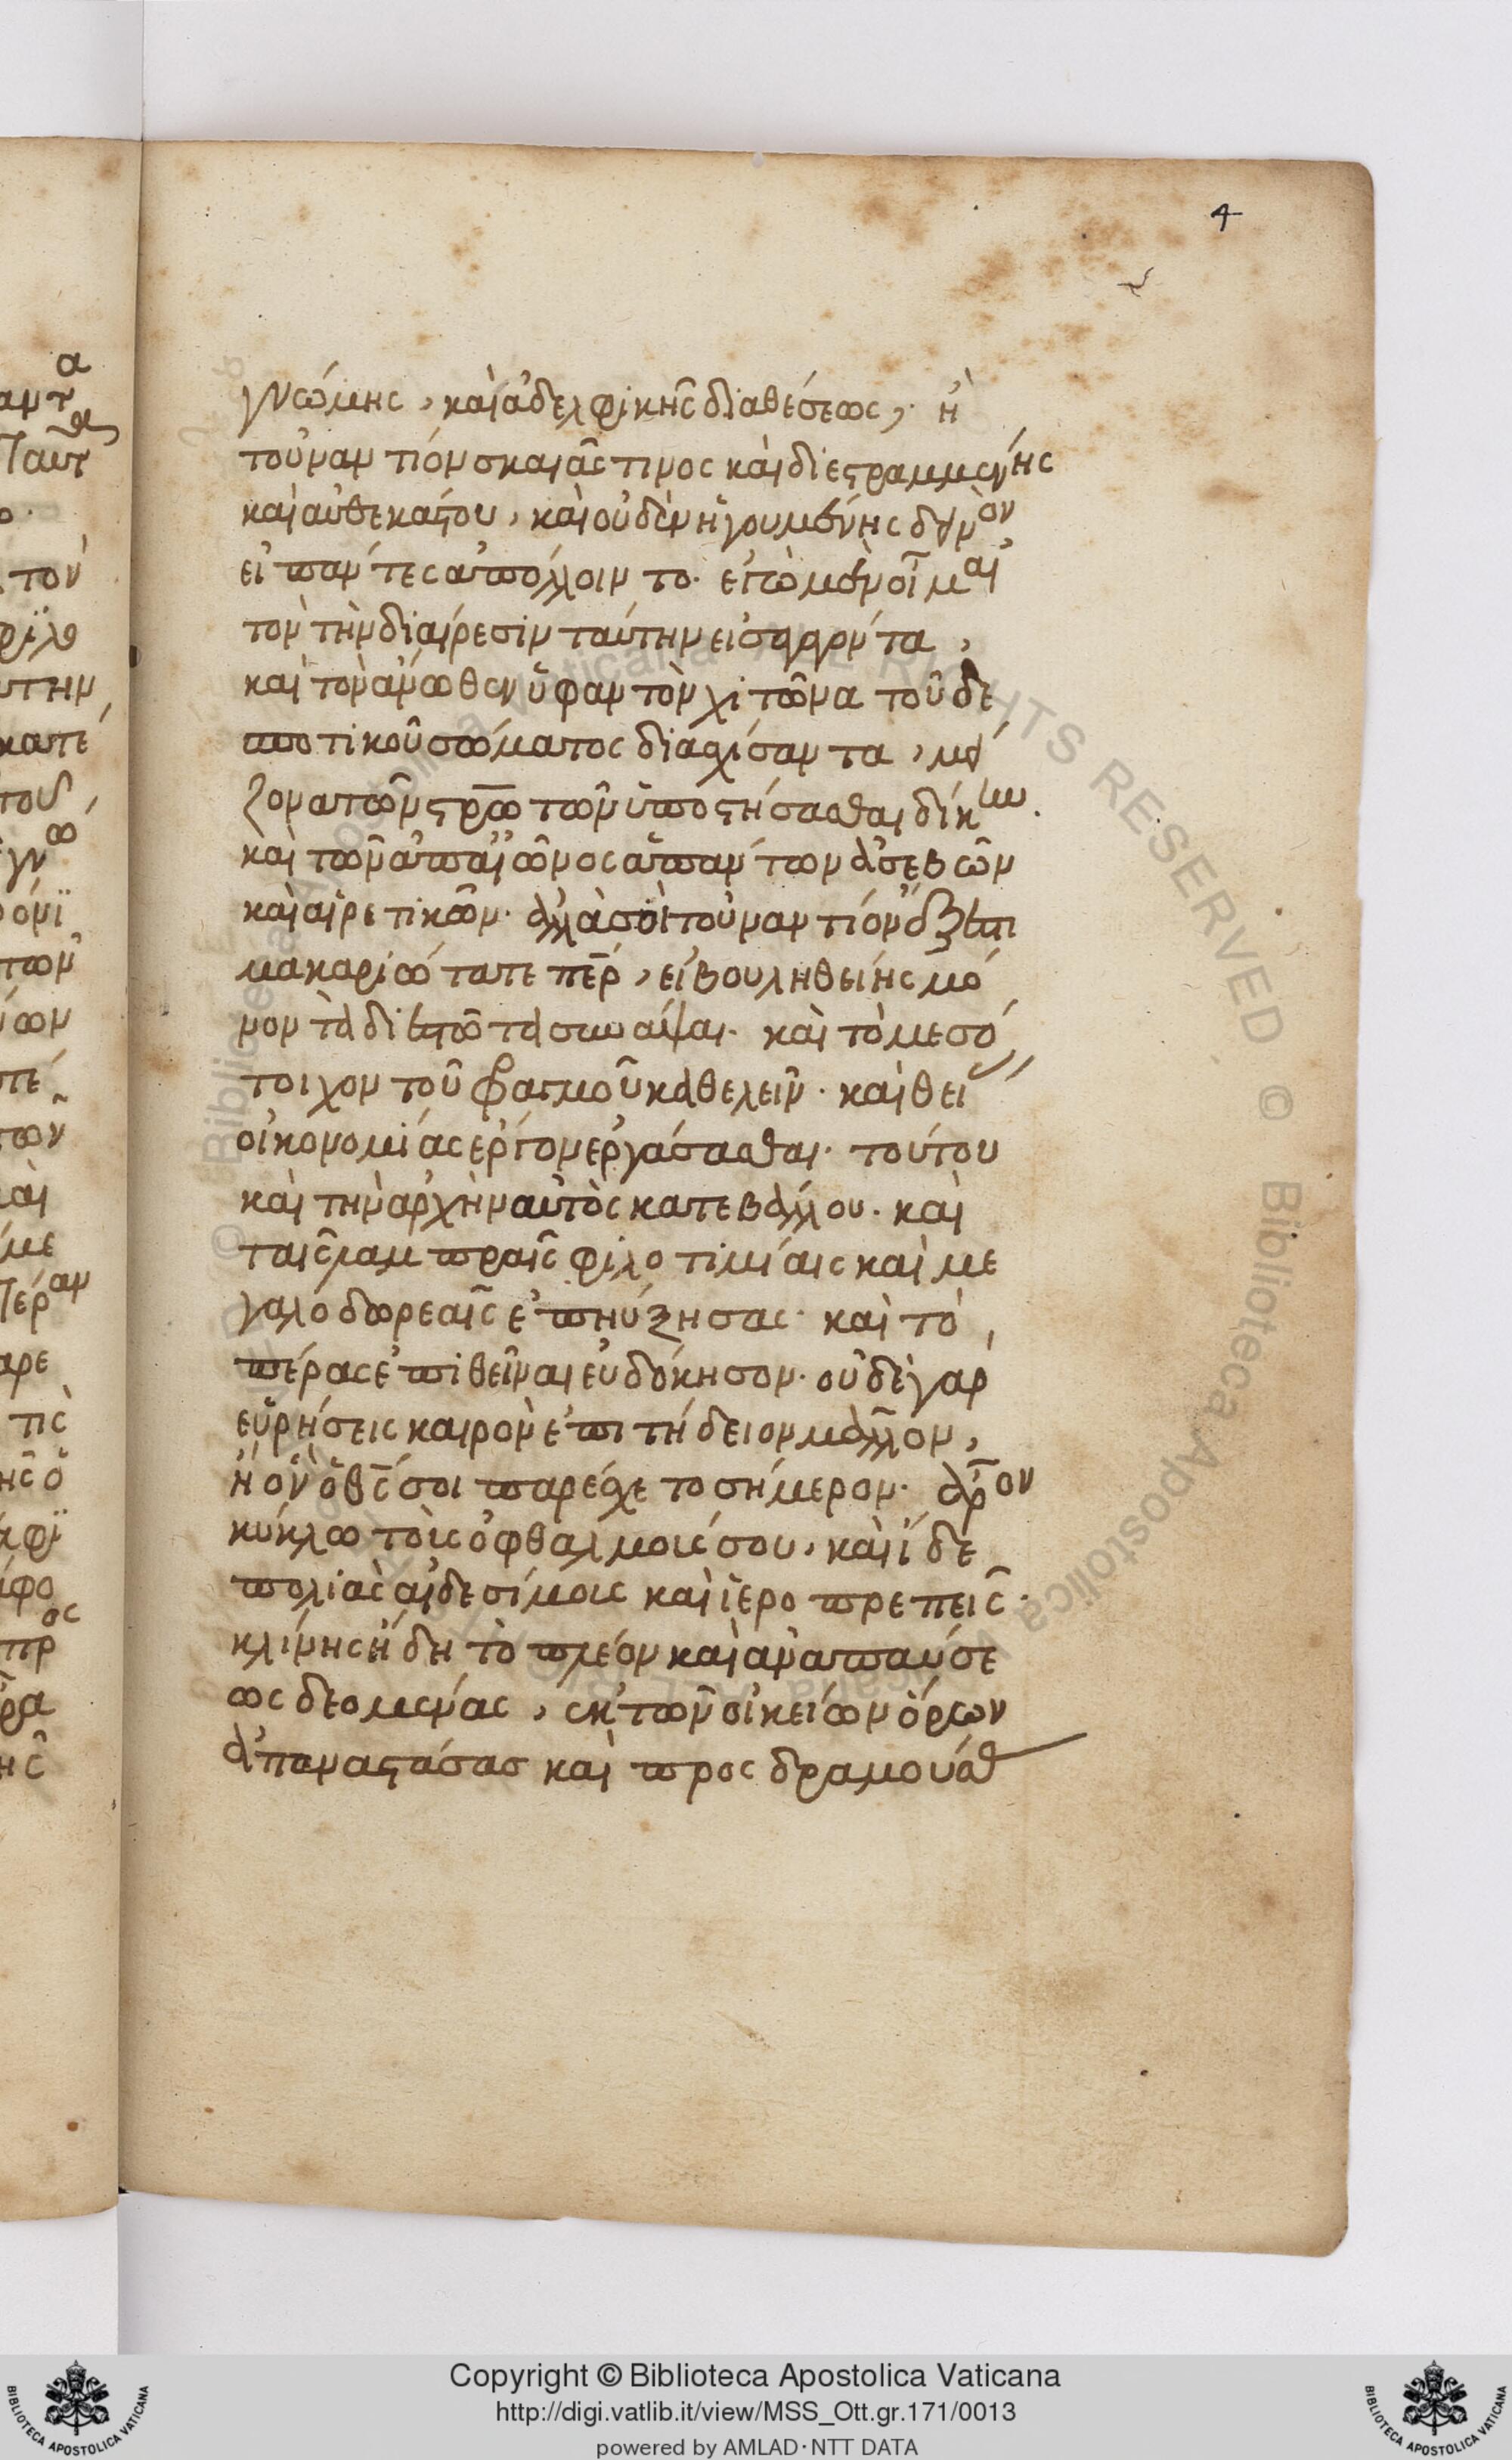 4
γνώμης, καὶ ἀδελφικῆς διαθέσεως, ἢ
τοὐναντίον σκαιᾶς τινος καὶ διεστραμμένης
καὶ αὐθεκάστου, καὶ οὐδὲν ἡγουμένης δεινὸν
εἰ πάντες ἀπόλλοιντο. ἐγὼ μὲν οἶμαι
τὸν τὴν διαίρεσιν ταύτην εἰσαγαγόντα,
καὶ τὸν ἄνωθεν ὑφαντὸν χιτῶνα τοῦ δε
σποτικοῦ σώματος διασχίσαντα, μεί
ζονα τῶν στρωτῶν ὑποστήσασθαι δίκην.
καὶ τῶν ἀπ' αἰῶνος ἁπάντων ἀσεβῶν
καὶ αἱρετικῶν. ἀλλὰ σοὶ τοὐναντίον ἔξεστι
μακαριώτατε πέρ, εἰ βουληθείης μό
νον τὰ διεστῶτα συνάψαι. καὶ τὸ μεσό
τοιχον τοῦ φραγμοῦ καθελεῖν. καὶ θεί
οἰκονομίας ἔργον ἐργάσασθαι. τούτου
καὶ τὴν ἀρχὴν αὐτὸς κατεβάλλου. καὶ
ταῖς λαμπραῖς φιλοτιμίαις καὶ με
γαλοδωρεαῖς ἐπηύξησας. καὶ τὸ
πέρας ἐπιθεῖναι εὐδόκησον. οὐδὲ γὰρ
εὑρήσεις καιρὸν ἐπιτήδειον μᾶλλον,
ἢ ὃν ὁ θς σοι παρέσχετο σήμερον. ἆρον
κύκλω τοὺς ὀφθαλμούς σου, καὶ ἴδε
πολιὰς αἰδεσίμους καὶ ἱεροπρεπεῖς.
κλίνης ἤδη τὸ πλέον καὶ ἀναπαύσε
ως δεομένας, ἐκ τῶν οἰκείων ὅρων
ἀπαναστάσας καὶ προσδραμούσας
α
αντ
ταυτ
τον
φιλο
υτην
κατε
τους
γνω
των
των
και
με
τέραν
αρε
τις
ῆς ὁ
προς
ρα
ῆς
Copyright © Biblioteca Apostolica Vaticana
http://digi.vatlib.it/view/MSS_Ott.gr.171/0013
powered by AMLAD·NTT DATA